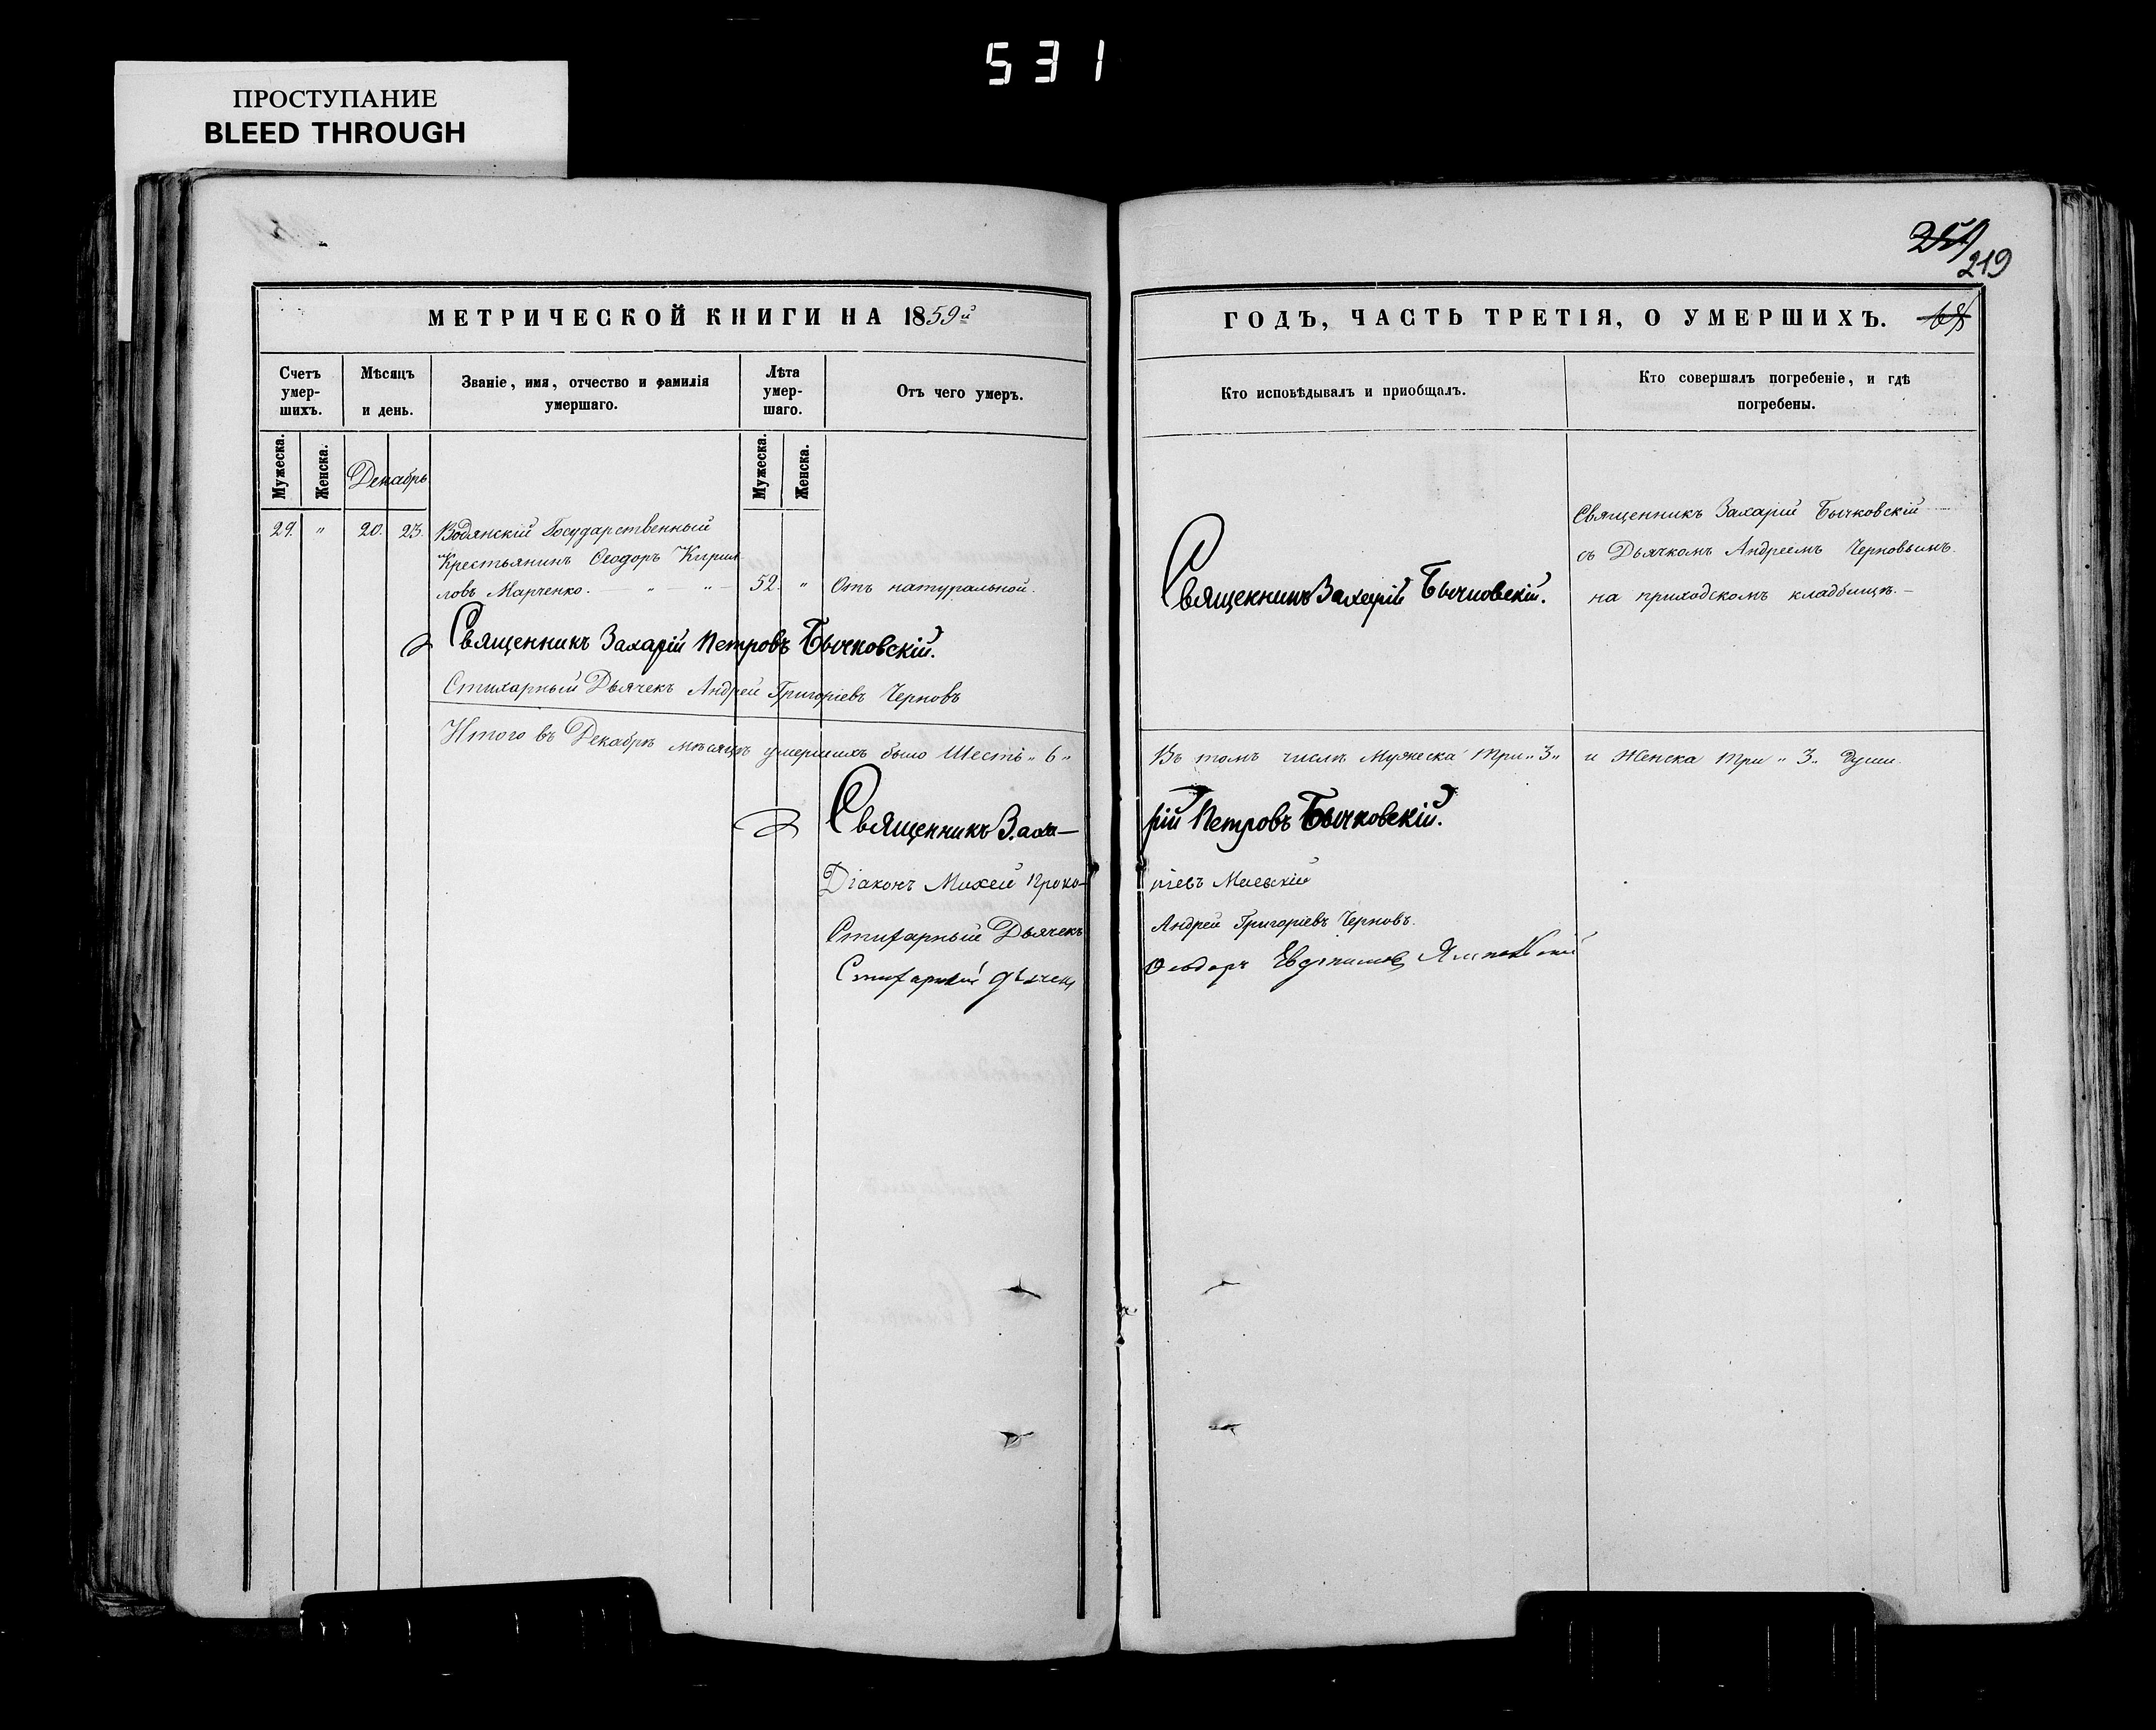 531
ПРОСТУПАНИЕ
BLEED THROUGH
219
МЕТРИЧЕСКОЙ КНИГИ НА 1859й
ГОДЪ, ЧАСТЬ ТРЕТІЯ, О УМЕРШИХЪ.
Счетъ умер-шихъ.
Мѣсяцъ и день.
Званіе, имя, отчество и фамилія умершаго.
Лѣта умер-шаго.
Отъ чего умеръ.
Кто исповѣдывалъ и пріобщалъ.
Кто совершалъ погребеніе, и гдѣ погребены.
Мужеска.
Женска.
Декабрь
Мужеска.
Женска.
29. " 20. 23. Водянскій Государственный
Крестьянинъ Ѳеодоръ Кирил
ловъ Марченко. 52. " Отъ натуральной.
Священникъ Захарій Бычковскій.
Священникъ Захарій Бычковскій
съ Дьячкомъ Андреемъ Черновымъ.
на приходскомъ кладбищѣ.
Священникъ Захарій Петровъ Бычковскій.
Стихарный Дьячекъ Андрей Григоріевъ Черновъ
Итого въ Декабрѣ мѣсяцѣ умершихъ было Шесть „ 6 „
Въ томъ числѣ Мужеска три „ 3 „ и Женска три „ 3 „ души.
Священникъ Заха—
рій Петровъ Бычковскій.
Діаконъ Михей Проко-
піевъ Маевскій
Стихарный Дьячекъ
Андрей Григоріевъ Черновъ.
Стихарный дьячекъ
Ѳеодоръ